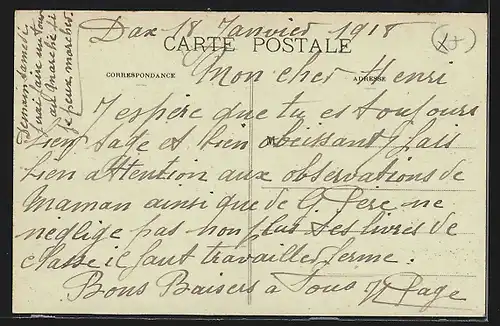 Dax 18 Janvier 1918
CARTE POSTALE
CORRESPONDANCE
ADRESSE
Mon cher Henri
J'espère que tu es toujours
bien sage et bien obeissant, fais
bien attention aux observations de
Maman ainsi que de G. Pere ne
neglige pas non plus tes livres de
classe il faut travailler ferme.
Bons Baisers à Tous
Page
Demain samedi
j'irai faire un tour
au marché si
je peux marcher.